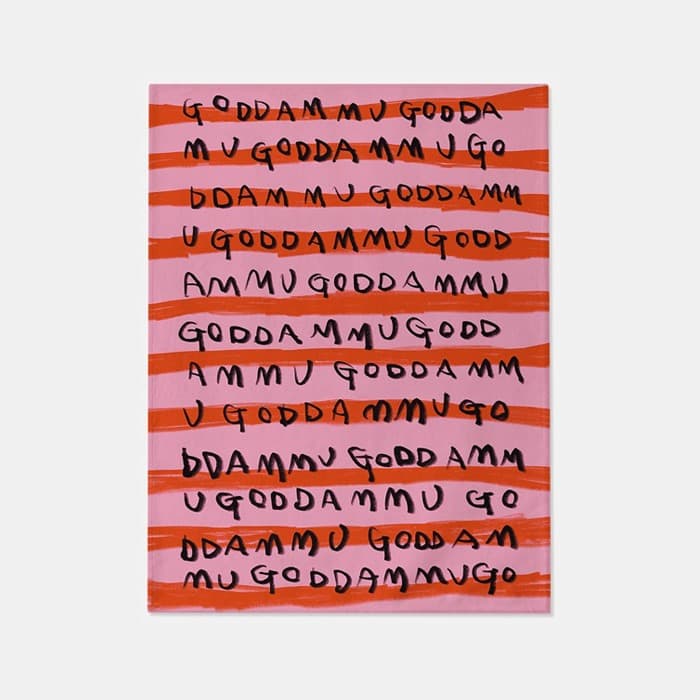 GODDAMMU GODDA
MU GODDAMMUGO
DDAMMU GODDAMM
U GODDAMMU GODD
AMMU GODDAMMU
GODDAMMUGODD
AMMU GODDAMM
U GODDAMMUGO
DDAMMU GODDAMM
UGODDAMMU GO
DDAMMU GODDAM
MU GODDAMMUGO